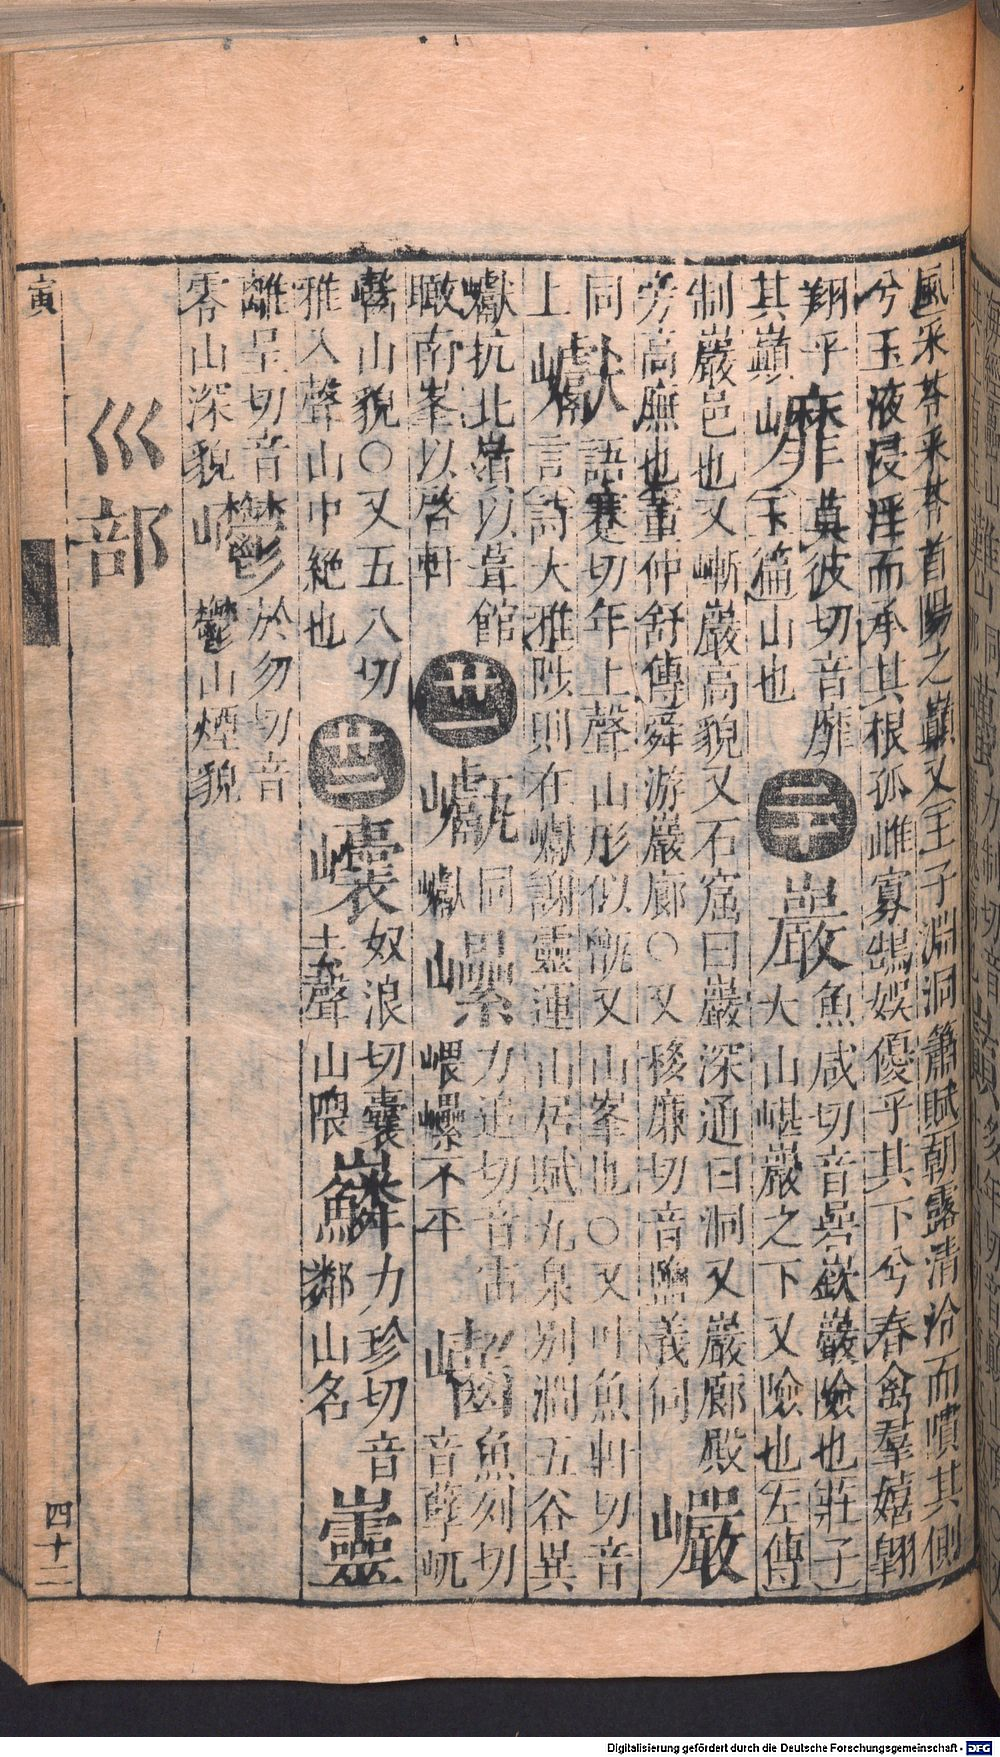 風采苓采苓首陽之巔又王子淵洞簫賦朝露清泠而隕其側
兮玉液浸潤而承其根孤雌寡鵠娛優乎其下兮春禽羣嬉翶
翔乎
其巔
𡾱
莫彼切音靡
玉篇山也
二十
巖
魚咸切音碞嶔巖險也莊子
大山嵁巖之下又險也左傳
制巖邑也又嶃巖高貌又石窟曰巖深通曰洞又巖廊殿
旁高廡也董仲舒傳舜游巖廊○又移廉切音鹽義同
巗
同
上
巘
語蹇切年上聲山形似甑又山峯也○又叶魚軒切音
言詩大雅陟則在巘謝靈運山居賦九泉別澗五谷異
巘抗北嶺以葺館
瞰南峯以啓軒
廿一
甗
同
巘
山
纍
力追切音雷
崣㠥不平
㠨
魚列切
音孽屼
山貌○又五八切
雅入聲山中絶也
廿二
囊
奴浪切囊
去聲山隈
鱗
力珍切音
鄰山名
靈
離呈切音
零山深貌
鬱
於勿切音
鬱山煙貌
巛部
寅
四十二
Digitalisierung gefördert durch die Deutsche Forschungsgemeinschaft - DFG